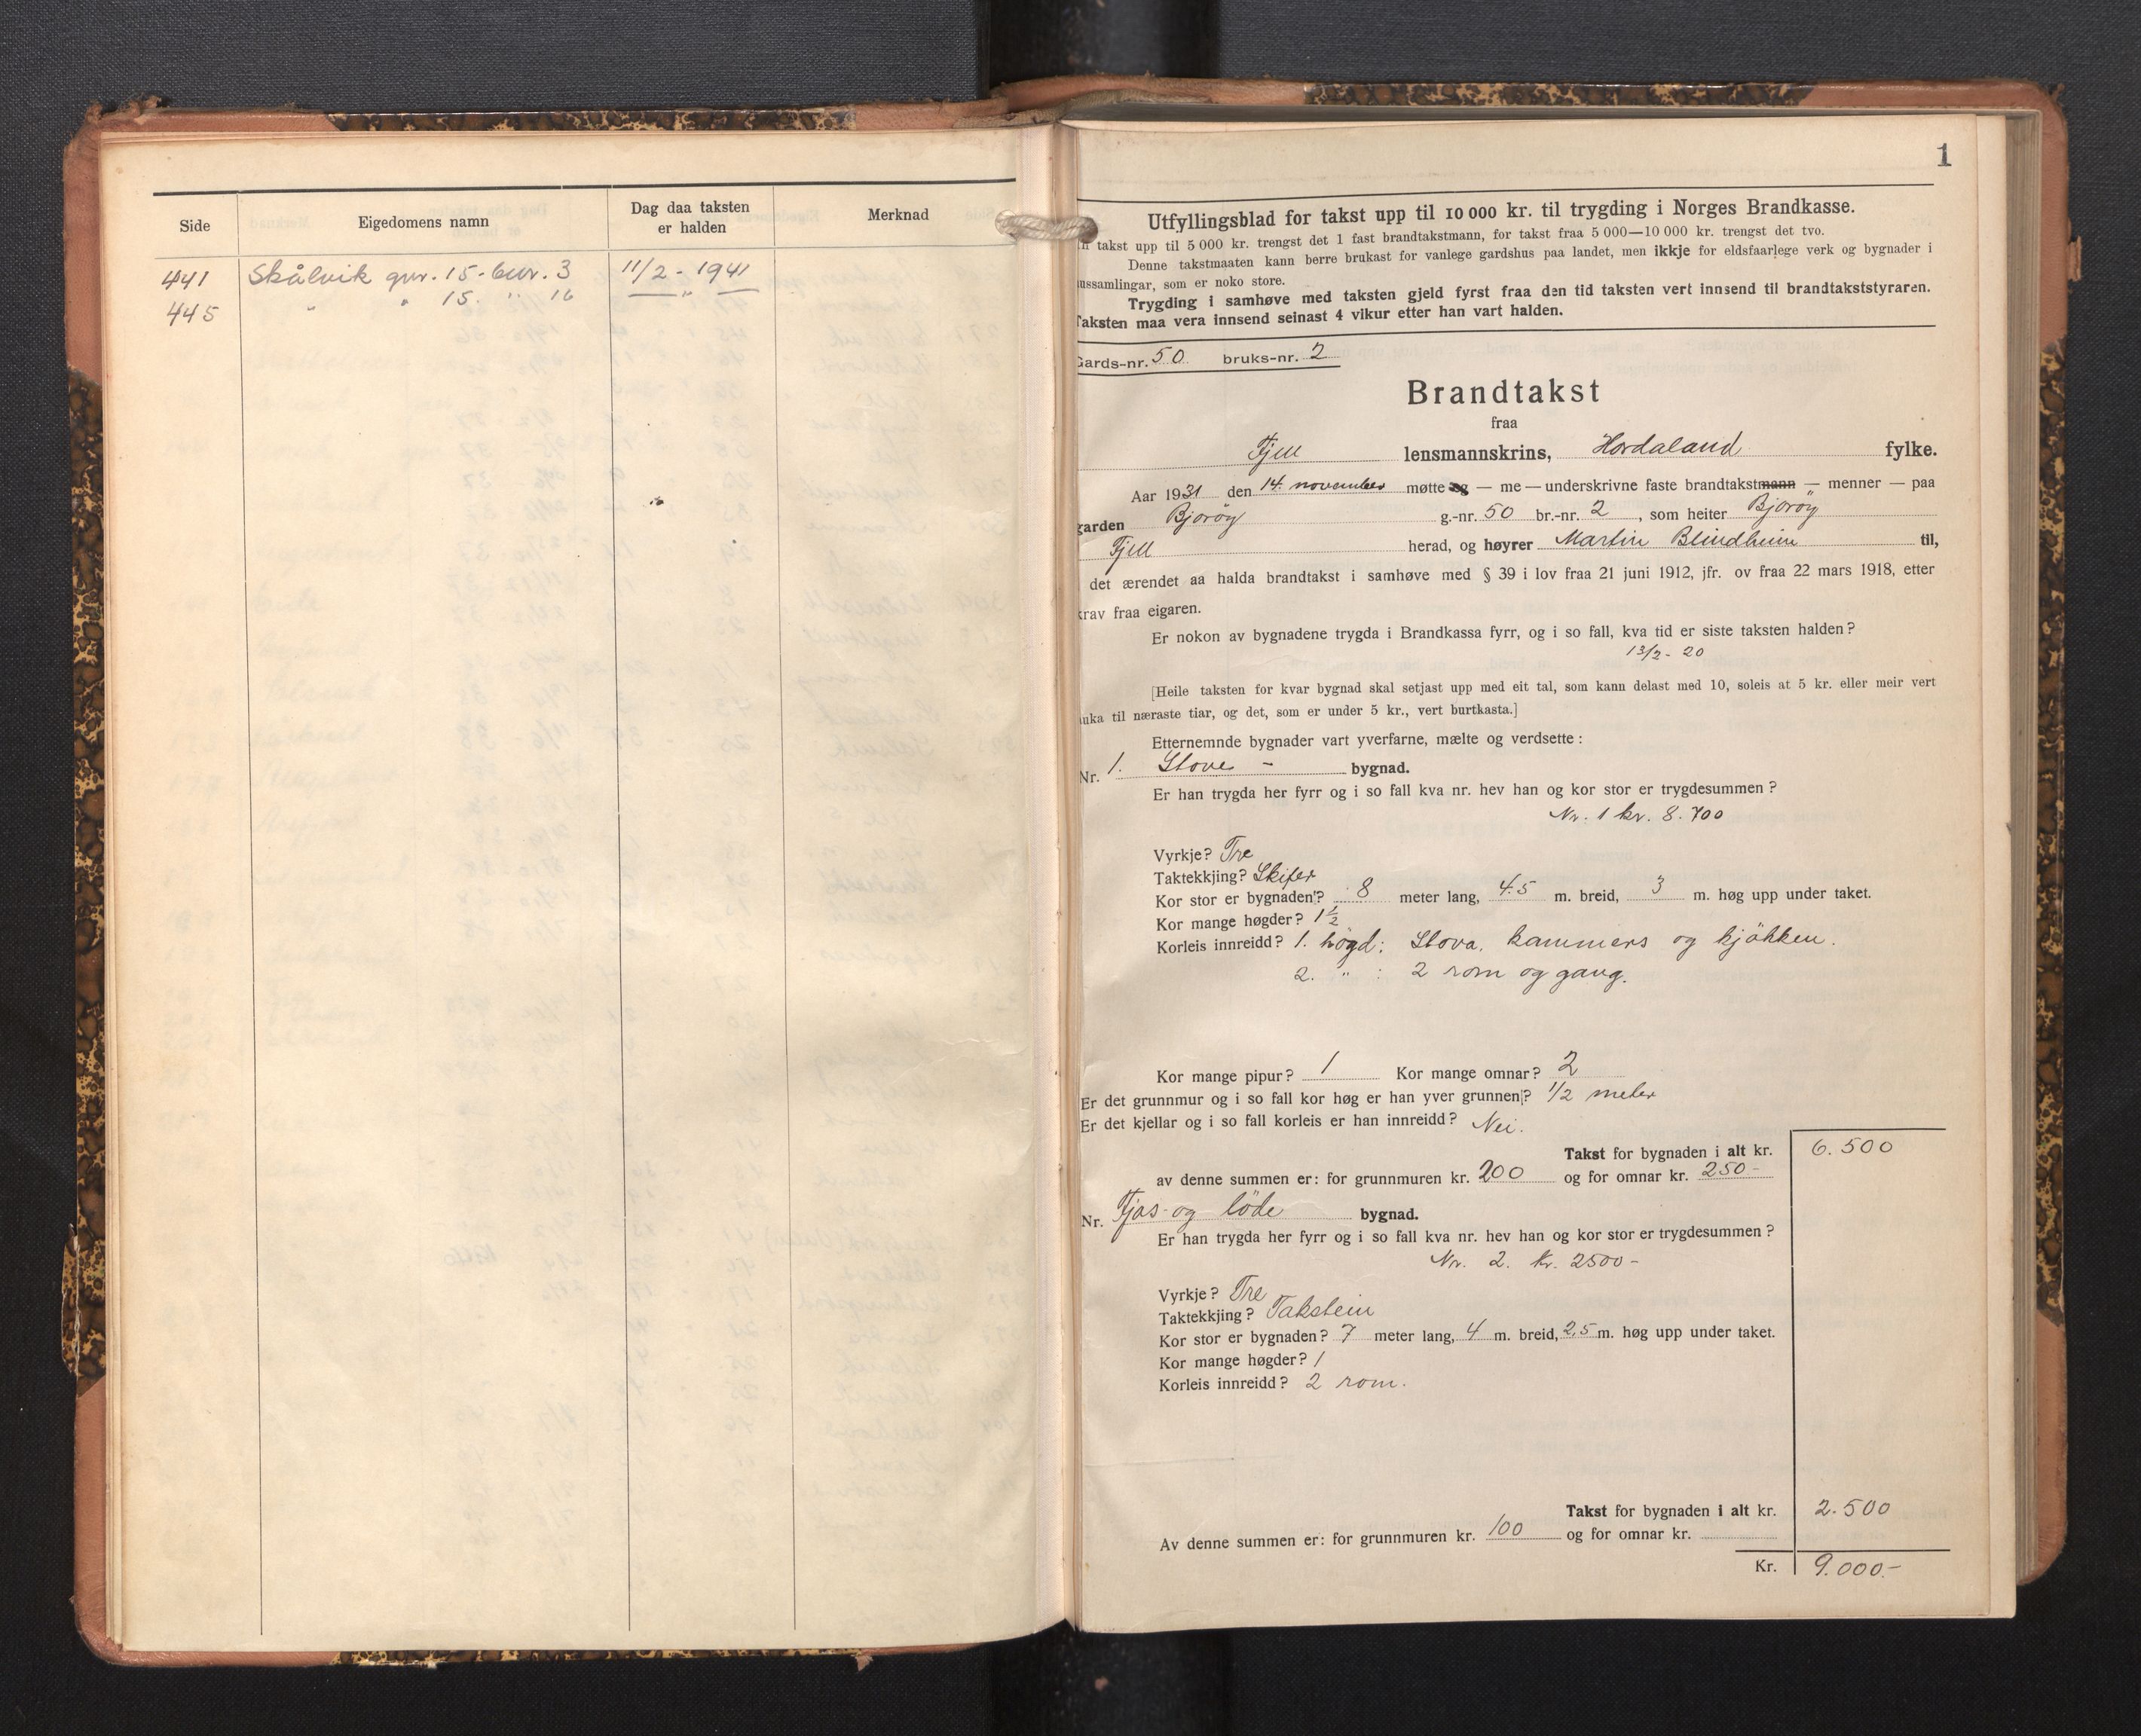 Side Eigedomens namn Dag daa taksten er halden Merknad
441 Skålvik gnr. 15 - bnr. 3 11/2 - 1941
445 " " 15. " 16 — " —
1
Utfyllingsblad for takst upp til 10 000 kr. til trygding i Norges Brandkasse.
takst upp til 5 000 kr. trengst det 1 fast brandtakstmann, for takst fraa 5 000—10 000 kr. trengst det tvo.
Denne takstmaaten kann berre brukast for vanlege gardshus paa landet, men ikkje for eldsfaarlege verk og bygnader i
ussamlingar, som er noko store.
Trygding i samhøve med taksten gjeld fyrst fraa den tid taksten vert innsend til brandtakststyraren.
Taksten maa vera innsend seinast 4 vikur etter han vart halden.
Gards-nr. 50 bruks-nr. 2
Brandtakst
fraa
Fjell lensmannskrins, Hordaland fylke.
Aar 1931 den 14. november møtte eg — me — underskrivne faste brandtakstmann — menner — paa
garden Bjoröy g.-nr. 50 br.-nr. 2, som heiter Bjoröy
Fjell herad, og høyrer Martin Blindheim til,
det ærendet aa halda brandtakst i samhøve med § 39 i lov fraa 21 juni 1912, jfr. ov fraa 22 mars 1918, etter
krav fraa eigaren.
Er nokon av bygnadene trygda i Brandkassa fyrr, og i so fall, kva tid er siste taksten halden?
13/2 - 20
[Heile taksten for kvar bygnad skal setjast upp med eit tal, som kann delast med 10, soleis at 5 kr. eller meir vert
auka til næraste tiar, og det, som er under 5 kr., vert burtkasta.]
Etternemnde bygnader vart yverfarne, mælte og verdsette:
Nr. 1. Stove - bygnad.
Er han trygda her fyrr og i so fall kva nr. hev han og kor stor er trygdesummen?
Nr. 1 kr. 8.700
Vyrkje? Tre
Taktekkjing? Skifer
Kor stor er bygnaden? 8 meter lang, 4.5 m. breid, 3 m. høg upp under taket.
Kor mange høgder? 1 1/2
Korleis innreidd? 1. högd: Stova, kammers og kjökken.
2. " : 2 rom og gang.
Kor mange pipur? 1 Kor mange omnar? 2
Er det grunnmur og i so fall kor høg er han yver grunnen? 1/2 meter
Er det kjellar og i so fall korleis er han innreidd? Nei.
Takst for bygnaden i alt kr. 6.500
av denne summen er: for grunnmuren kr. 200 og for omnar kr. 250-
Nr. Fjos- og löde bygnad.
Er han trygda her fyrr og i so fall kva nr. hev han og kor stor er trygdesummen?
Nr. 2. kr. 2500-
Vyrkje? Tre
Taktekkjing? Takstein
Kor stor er bygnaden? 7 meter lang, 4 m. breid, 2,5 m. høg upp under taket.
Kor mange høgder? 1
Korleis innreidd? 2 rom.
Takst for bygnaden i alt kr. 2.500
Av denne summen er: for grunnmuren kr. 100 og for omnar kr.
Kr. 9.000.-